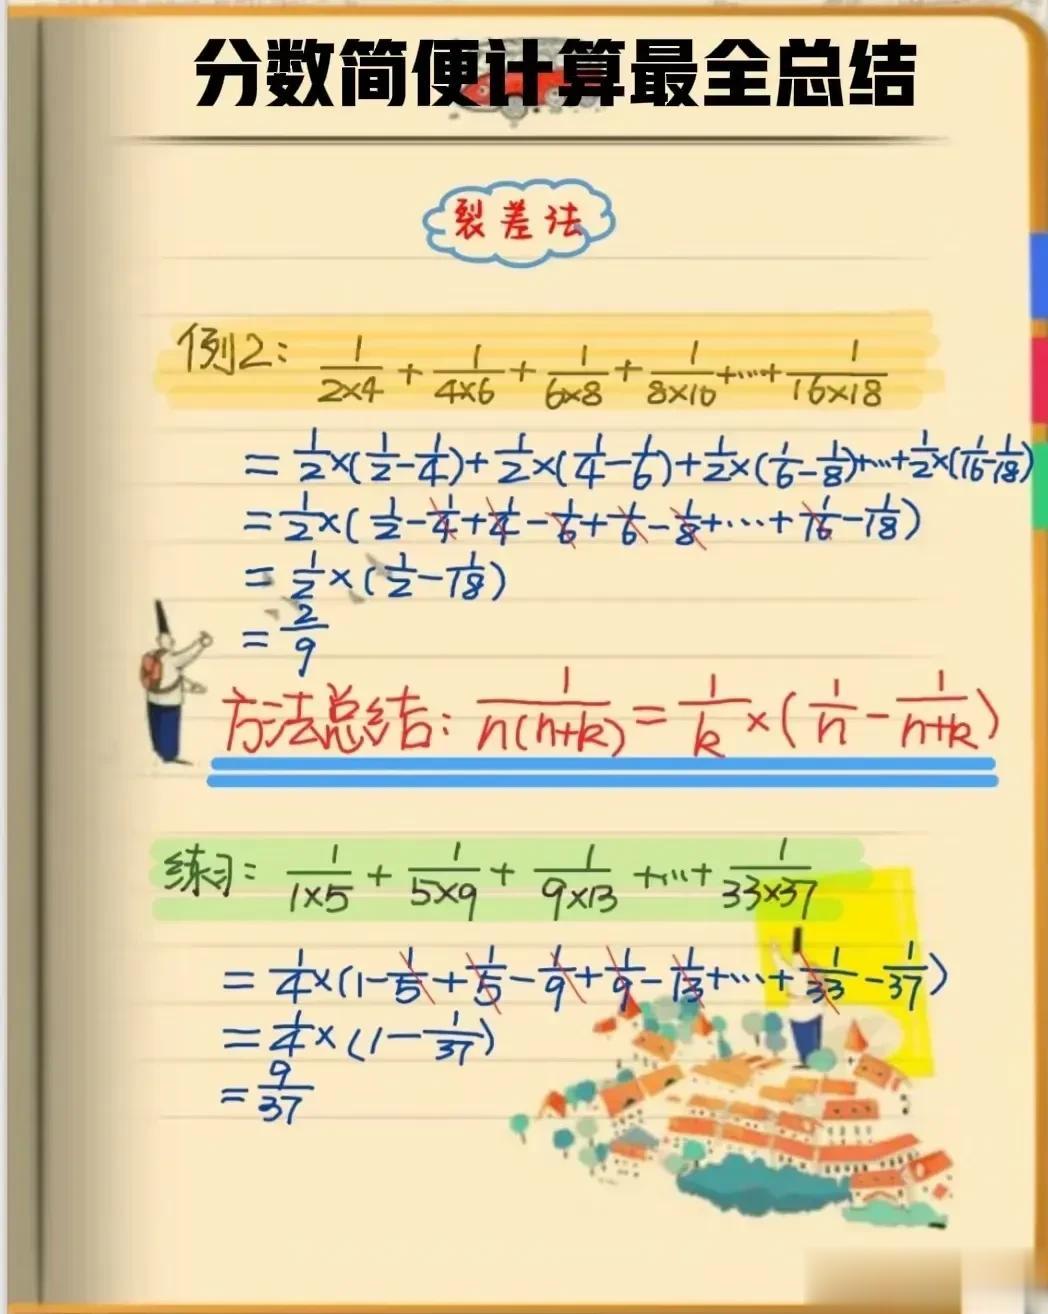 分数简便计算最全总结
裂差法
例2: 1/(2×4) + 1/(4×6) + 1/(6×8) + 1/(8×10) +…+ 1/(16×18)
= 1/2×(1/2-1/4)+1/2×(1/4-1/6)+1/2×(1/6-1/8)+…+1/2×(1/16-1/18)
= 1/2×(1/2-1/4+1/4-1/6+1/6-1/8+…+1/16-1/18)
= 1/2×(1/2-1/18)
= 2/9
方法总结: 1/(n(n+k)) = 1/k×(1/n - 1/(n+k))
练习: 1/(1×5) + 1/(5×9) + 1/(9×13) +…+ 1/(33×37)
= 1/4×(1-1/5+1/5-1/9+1/9-1/13+…+1/33-1/37)
= 1/4×(1-1/37)
= 9/37